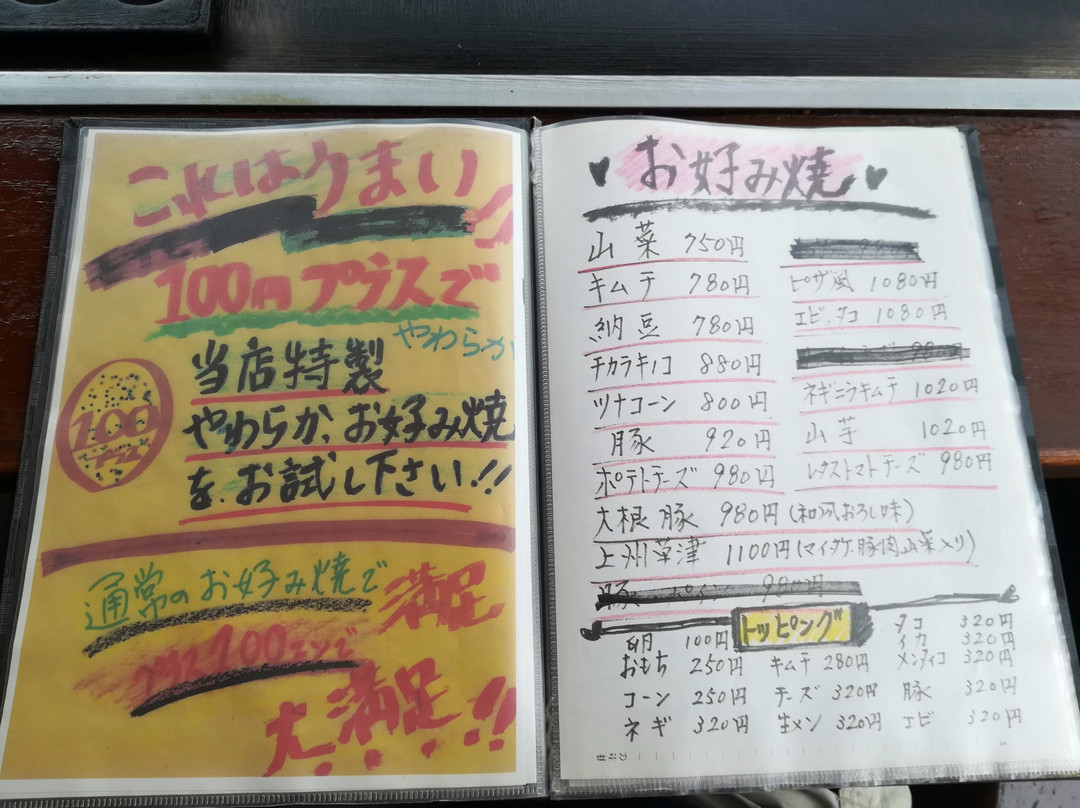 これはうまい!!
100円プラスで
やわらか
当店特製
やわらか、お好み焼
を、お試し下さい!!
100
通常のお好み焼で満足
プラス100エンで
大満足!!
お好み焼
山菜 750円
キムチ 780円
納豆 780円
チカラキノコ 880円
ツナコーン 800円
豚 920円
ポテトチーズ 980円
大根豚 980円(和風おろし味)
上州草津 1100円(マイタケ、豚肉山菜入り)
ピザ風 1080円
エビ、タコ 1080円
ネギニラキムチ 1020円
山芋 1020円
レタストマトチーズ 980円
トッピング
卵 100円
おもち 250円
コーン 250円
ネギ 320円
キムチ 280円
チーズ 320円
生メン 320円
タコ 320円
イカ 320円
メンタイコ 320円
豚 320円
エビ 320円